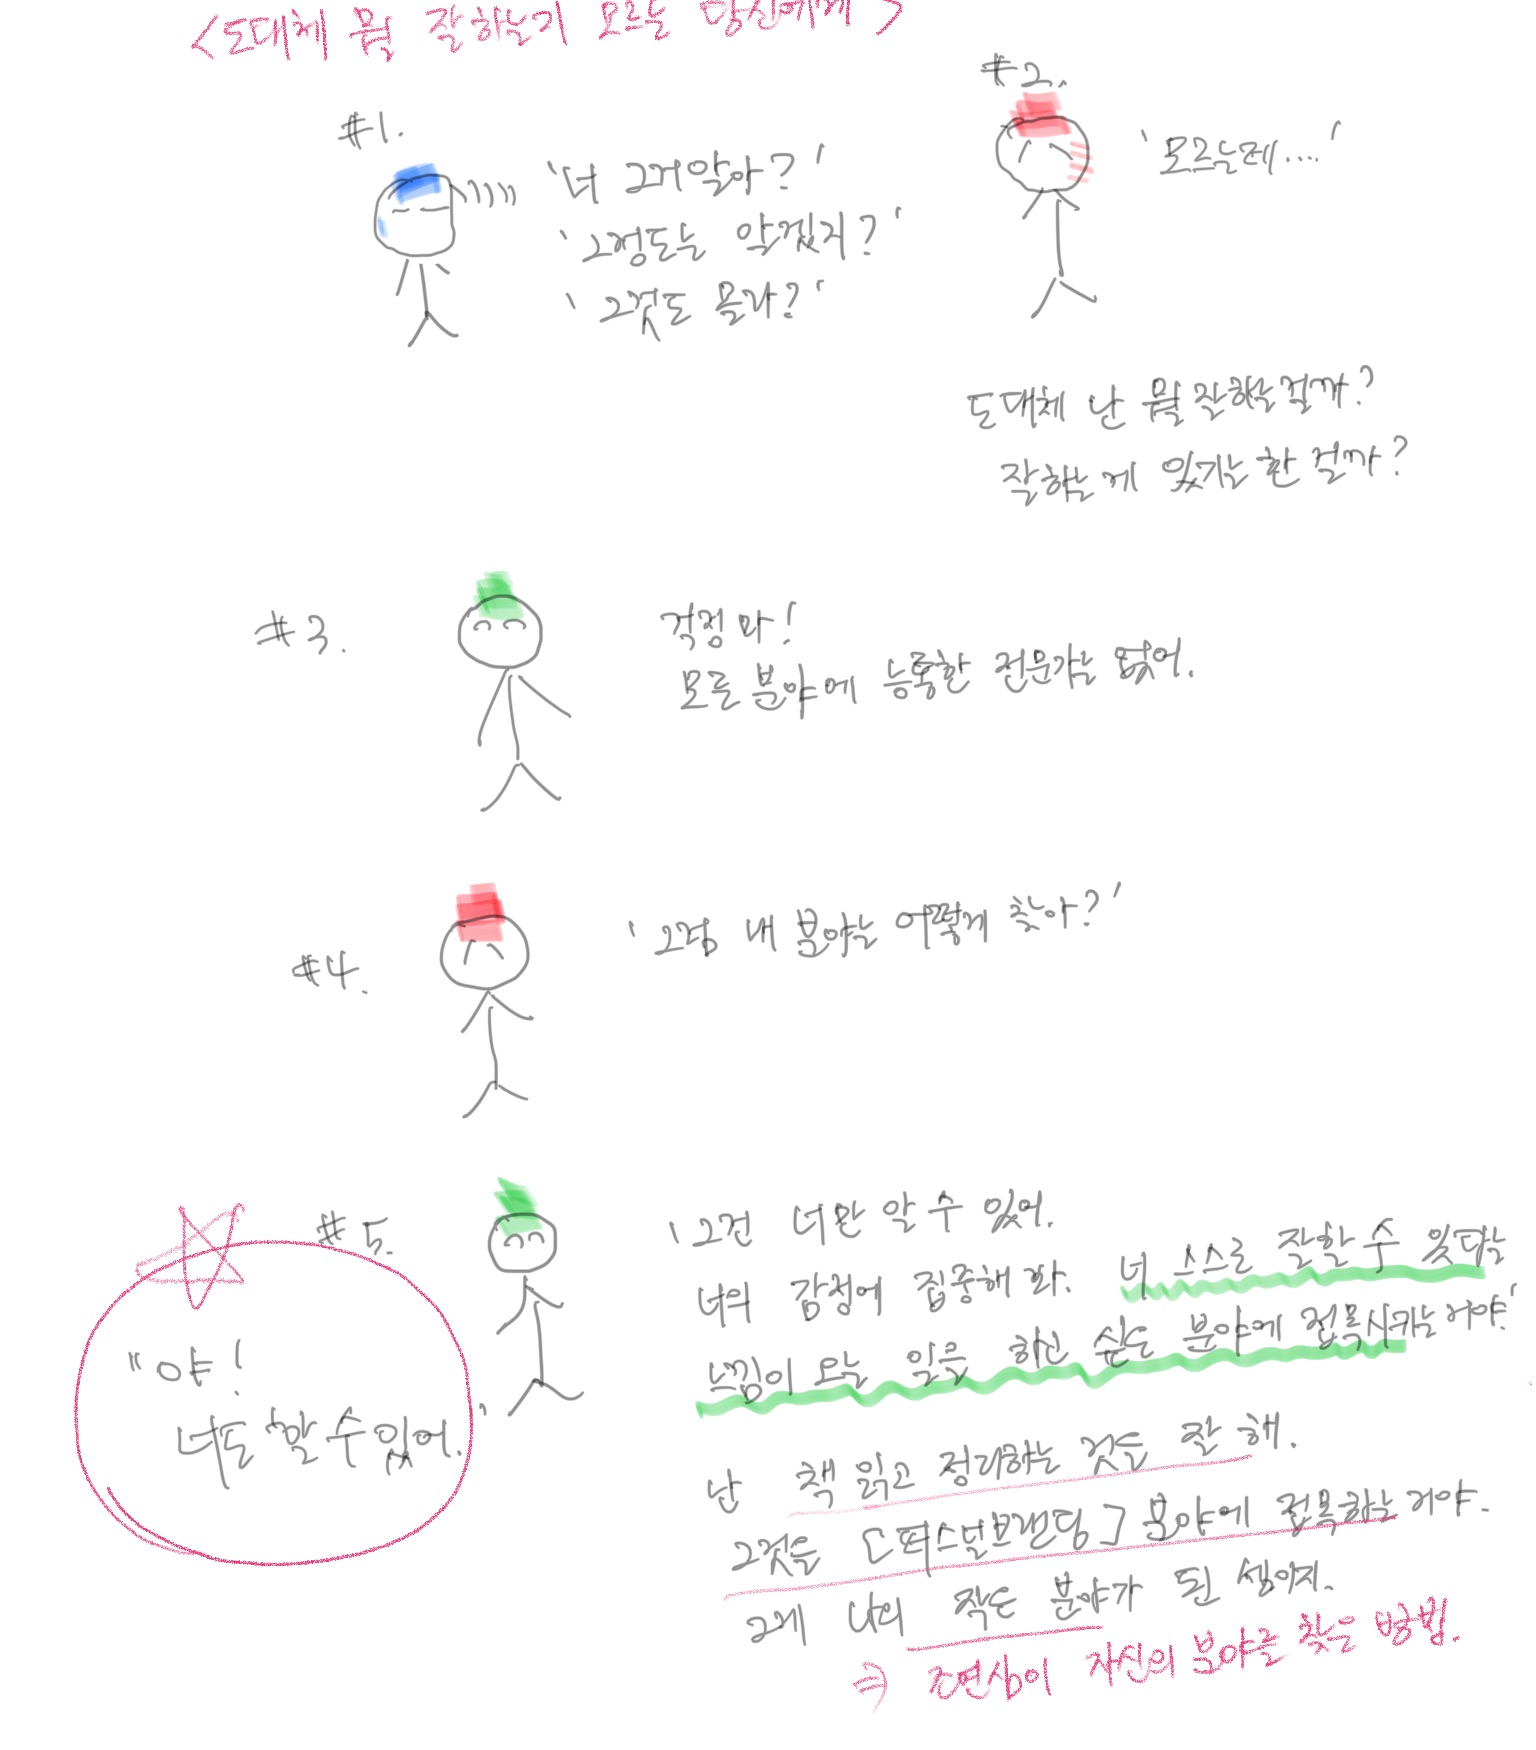 <도대체 뭘 잘하는지 모르는 당신에게>
#1.
'너 그거알아?'
'그정도는 알겠지?'
'그것도 몰라?'
#2.
'모르는데....'
도대체 난 뭘 잘하는걸까?
잘하는게 있기는 한 걸까?
#3.
걱정 마!
모든 분야에 능통한 전문가는 없어.
#4.
'그럼 내 분야는 어떻게 찾아?'
#5.
"야!
너도 할 수 있어.'
'그건 너만 알 수 있어.
너의 감정에 집중해 봐. 너 스스로 잘할 수 있다는
느낌이 오늘 일을 하고 싶은 분야에 접목시키는거야.'
난 책 읽고 정리하는 것을 잘 해.
그것을 [퍼스널브랜딩] 분야에 접목하는거야.
그게 나의 작은 분야가 된 셈이지.
⇒ 조연심이 자신의 분야를 찾은 방법.